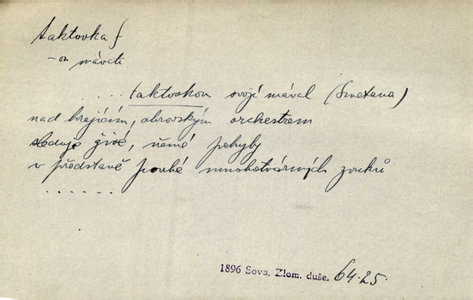 taktovka f
-ou mávati
... taktovkou svojí mával (Smetana)
nad hrajícím, obrovským orchestrem
sleduje živé, němé pohyby
v představě pouhé mnohotvárných zvuků
......
1896 Sova, Zlom. duše. 64.25